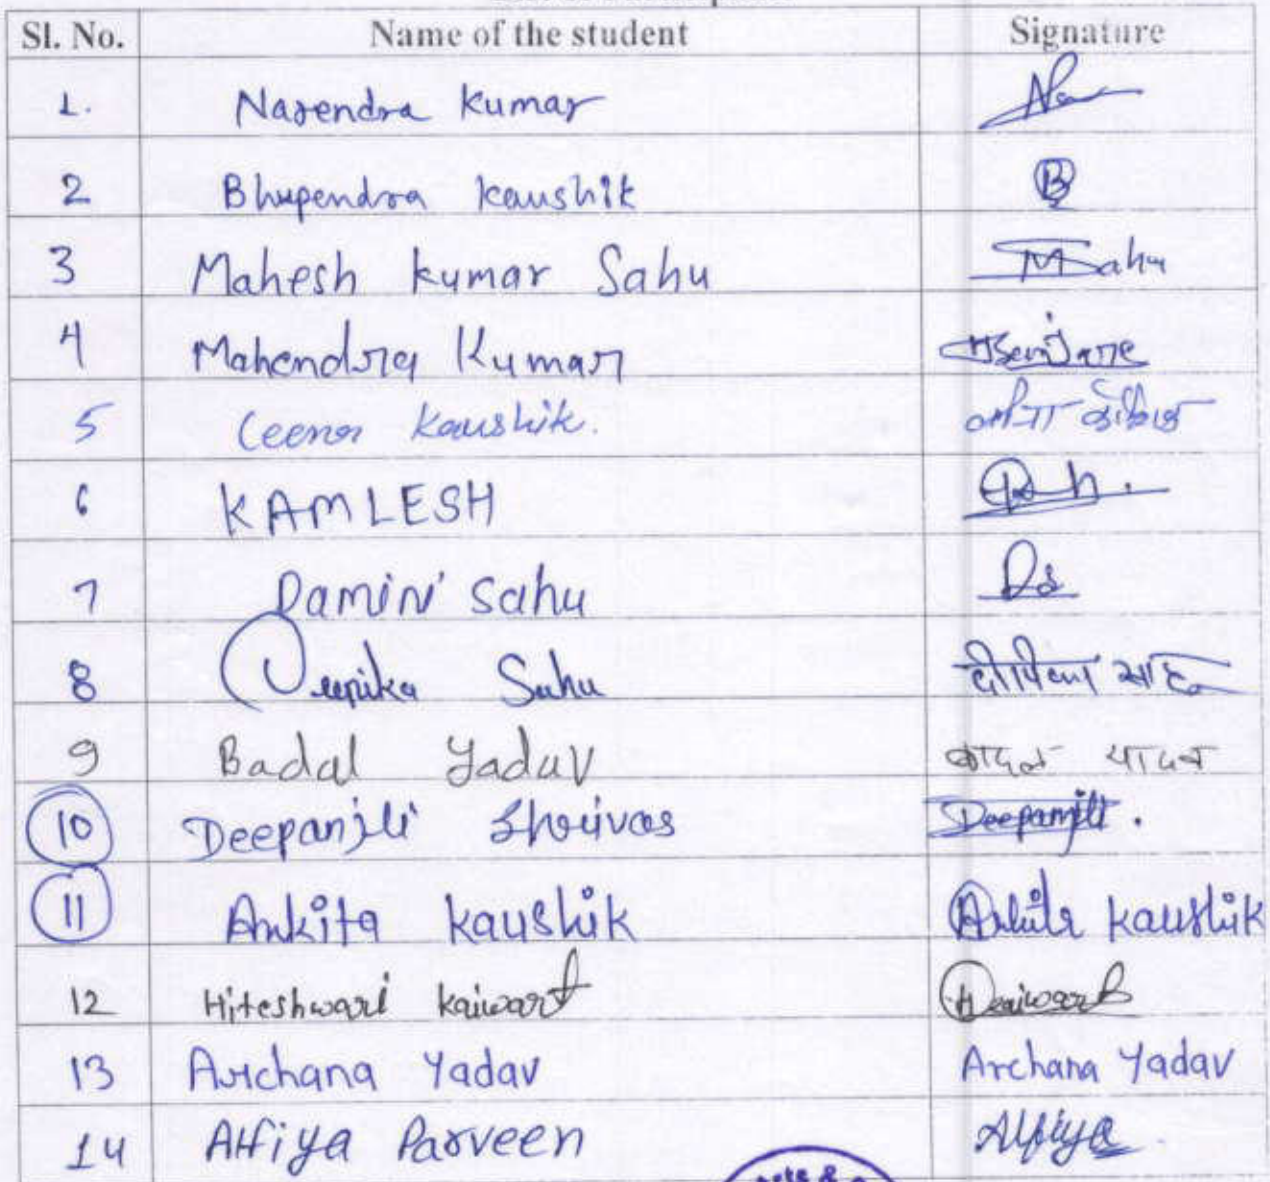 Sl. No. Name of the student Signature
1. Narendra Kumar
2 Bhupendra Kaushik B
3 Mahesh Kumar Sahu MSahu
4 Mahendra Kumar
5 Leena Kaushik.
6 KAMLESH
7 Damini Sahu Ds
8 Deepika Sahu दीपिका साहू
9 Badal Yadav बादल यादव
10 Deepanjli Shrivas Deepanjli.
11 Ankita Kaushik Ankita Kaushik
12 Hiteshwari Kaiwart
13 Archana Yadav Archana Yadav
14 Alfiya Parveen Alfiya